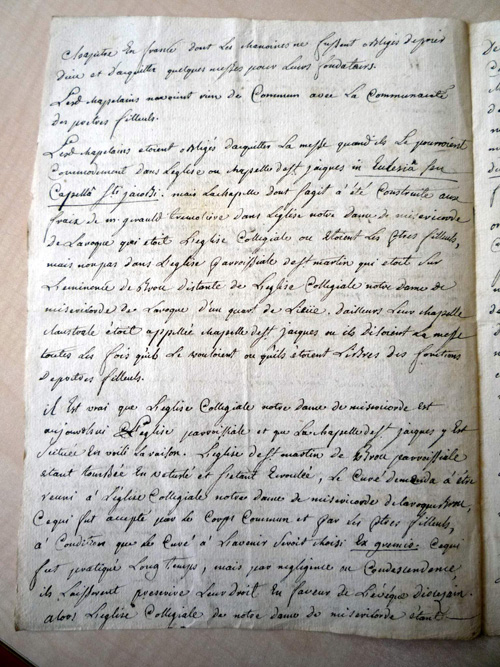 Chapitre En france dont Les Chanoines ne fussent obligés de prier
dieu et d'aquitter quelques messes pour Leurs fondateurs.
Lesd Chapelains n'avoient rien de Commun avec La Communauté
des pretres filleuls.
Lesd Chapelains etoient obligés d'aquitter La messe quand ils Le pourroient
Commodement dans L'eglise ou Chapelle de st jaques in Ecclesiâ seu
Capellâ sti jacobi. mais La chapelle dont s'agit a été Construite aux
fraix de mr. girauld dans L'eglise notre dame de misericorde
de Laroque qui etoit L'eglise Collegiale ou etoient Les ptres filleuls,
mais non pas dans L'eglise parroissiale de st martin qui etoit sur
L'eminence de Brou distante de L'eglise Collegiale notre dame de
misericorde de Laroque d'un quart de Lieüe. d'ailleurs Leur Chapelle
Claustrale étoit appellée Chapelle de st jaques ou ils disoient La messe
toutes Les fois qu'ils Le vouloient ou qu'ils etoient Libres des fonctions
de pretres filleuls.
il Est vrai que L'eglise Collegiale notre dame de misericorde est
aujourdhui L'eglise parroissiale et que La Chapelle de st jaques y Est
située En voici La raison. L'eglise de st martin de Brou parroissiale
etant tombée En vetusté et s'etant Ecroulée, Le Curé demanda a être
réuni a L'eglise Collegiale notre dame de misericorde de Laroque Brou,
Ce qui fut accepté par Le Corps Commun et par Les ptres filleuls,
a Condition que Le Curé a L'avenir seroit choisi Ex gremio. Ce qui
fut pratiqué Long temps, mais par negligence ou Condescendence
ils Laisserent prescrire Leur droit En faveur de L'eveque diocesain.
alors L'eglise Collegiale de notre dame de misericorde étant